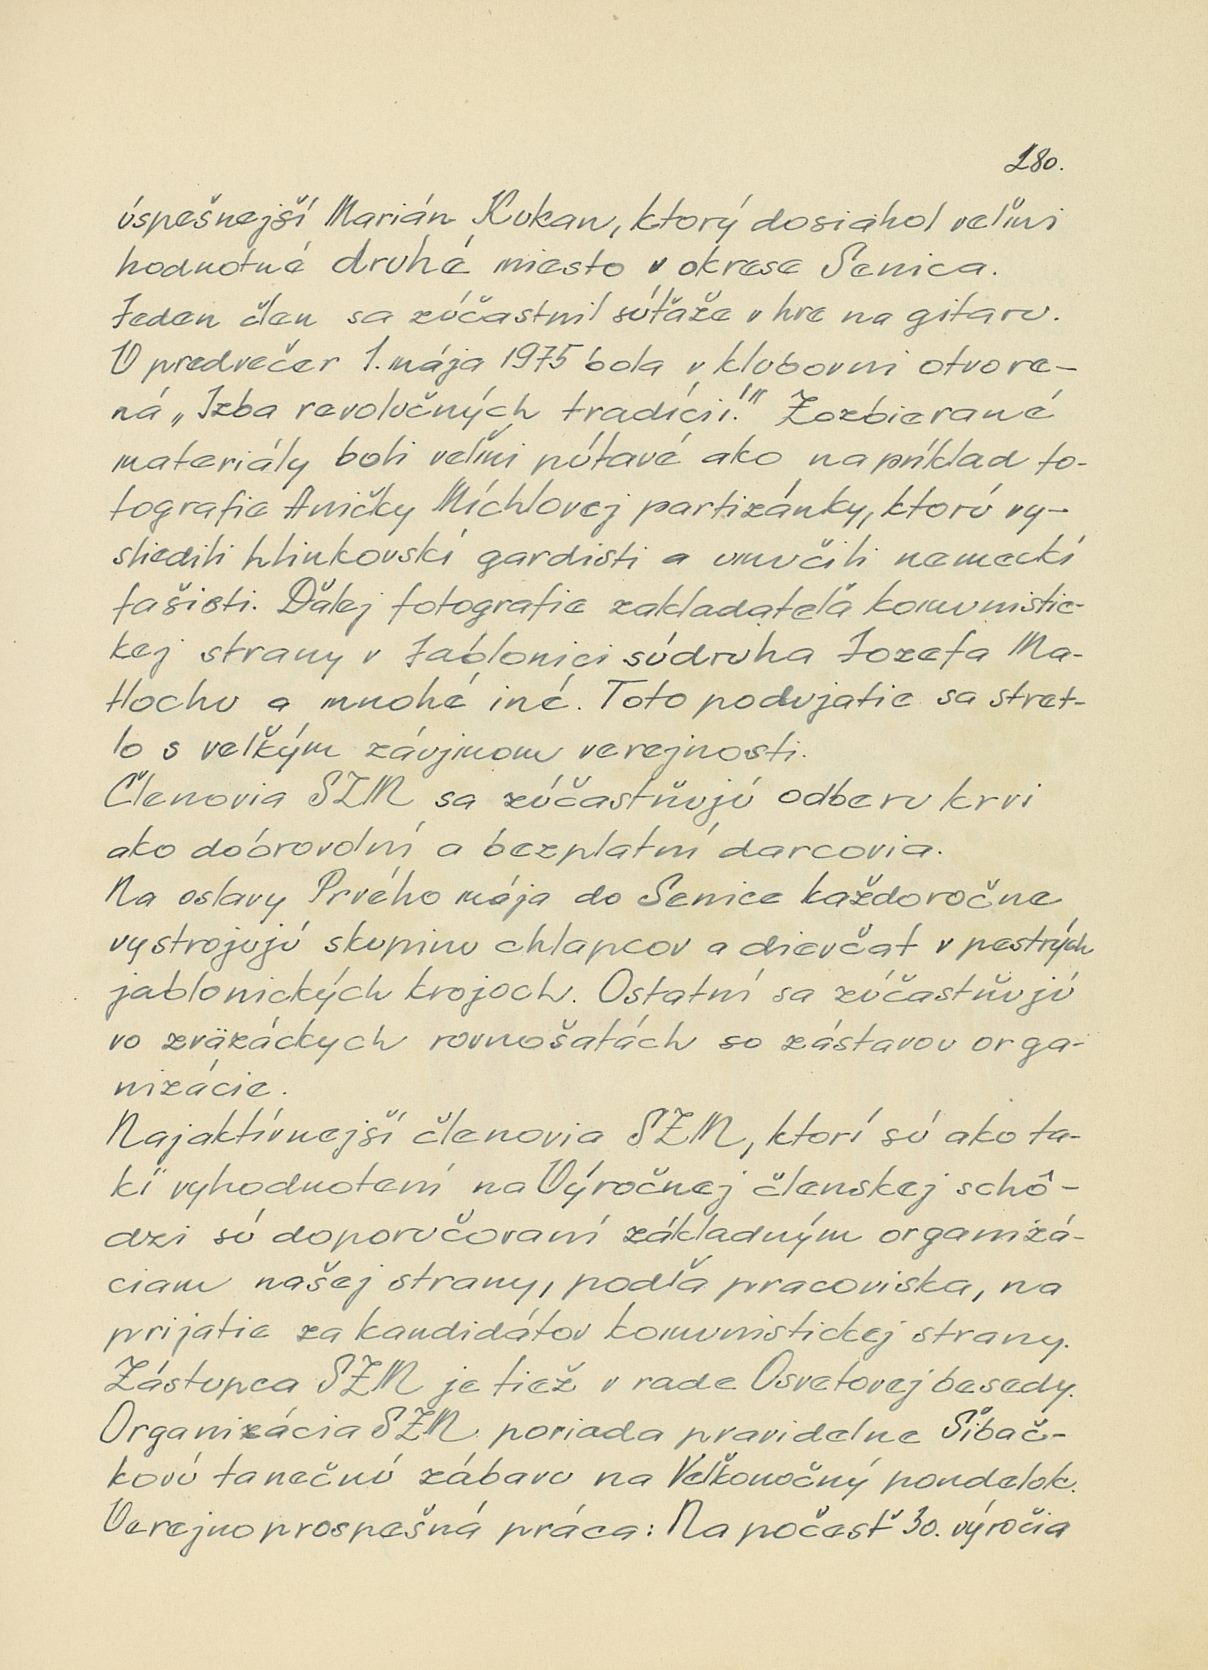 280.
úspešnejší Marián Kukan, ktorý dosiahol veľmi
hodnotné druhé miesto v okrese Senica.
Jeden člen sa zúčastnil súťaže v hre na gitaru.
V predvečer 1. mája 1975 bola v klubovni otvore-
ná „Izba revolučných tradícií." Zozbierané
materiály boli veľmi pútavé ako napríklad fo-
tografie Aničky Míchlovej partizánky, ktorú vy-
sliedili hlinkovskí gardisti a umučili nemeckí
fašisti. Ďalej fotografie zakladateľa komunistic-
kej strany v Jablonici súdruha Jozefa Ma-
tlochu a mnohé iné. Toto podujatie sa stret-
lo s veľkým záujmom verejnosti.
Členovia SZM sa zúčastňujú odberu krvi
ako dobrovolní a bezplatní darcovia.
Na oslavy Prvého mája do Senice každoročne
vystrojujú skupinu chlapcov a dievčat v pestrých
jablonických krojoch. Ostatní sa zúčastňujú
vo zväzáckych rovnošatách so zástavou orga-
nizácie.
Najaktívnejší členovia SZM, ktorí sú ako ta-
kí vyhodnotení na Výročnej členskej schô-
dzi sú doporučovaní základným organizá-
ciam našej strany, podľa pracoviska, na
prijatie za kandidátov komunistickej strany.
Zástupca SZM je tiež v rade Osvetovej besedy.
Organizácia SZM poriada pravidelne Šibač-
kovú tanečnú zábavu na Veľkonočný pondelok.
Verejnoprospešná práca: Na počesť 30. výročia